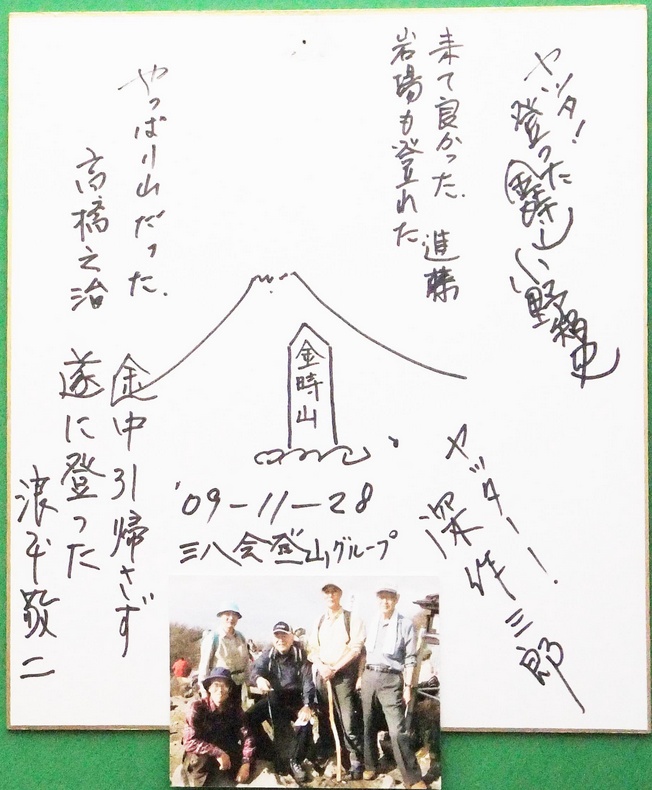 ヤッタ!
登った
来て良かった。進藤
岩場も登れた
やっぱり山だった。
高橋之治
金時山
金中引帰さず
遂に登った
浪平敬二
'09-11-28
三八会登山グループ
ヤッター!
深作三郎